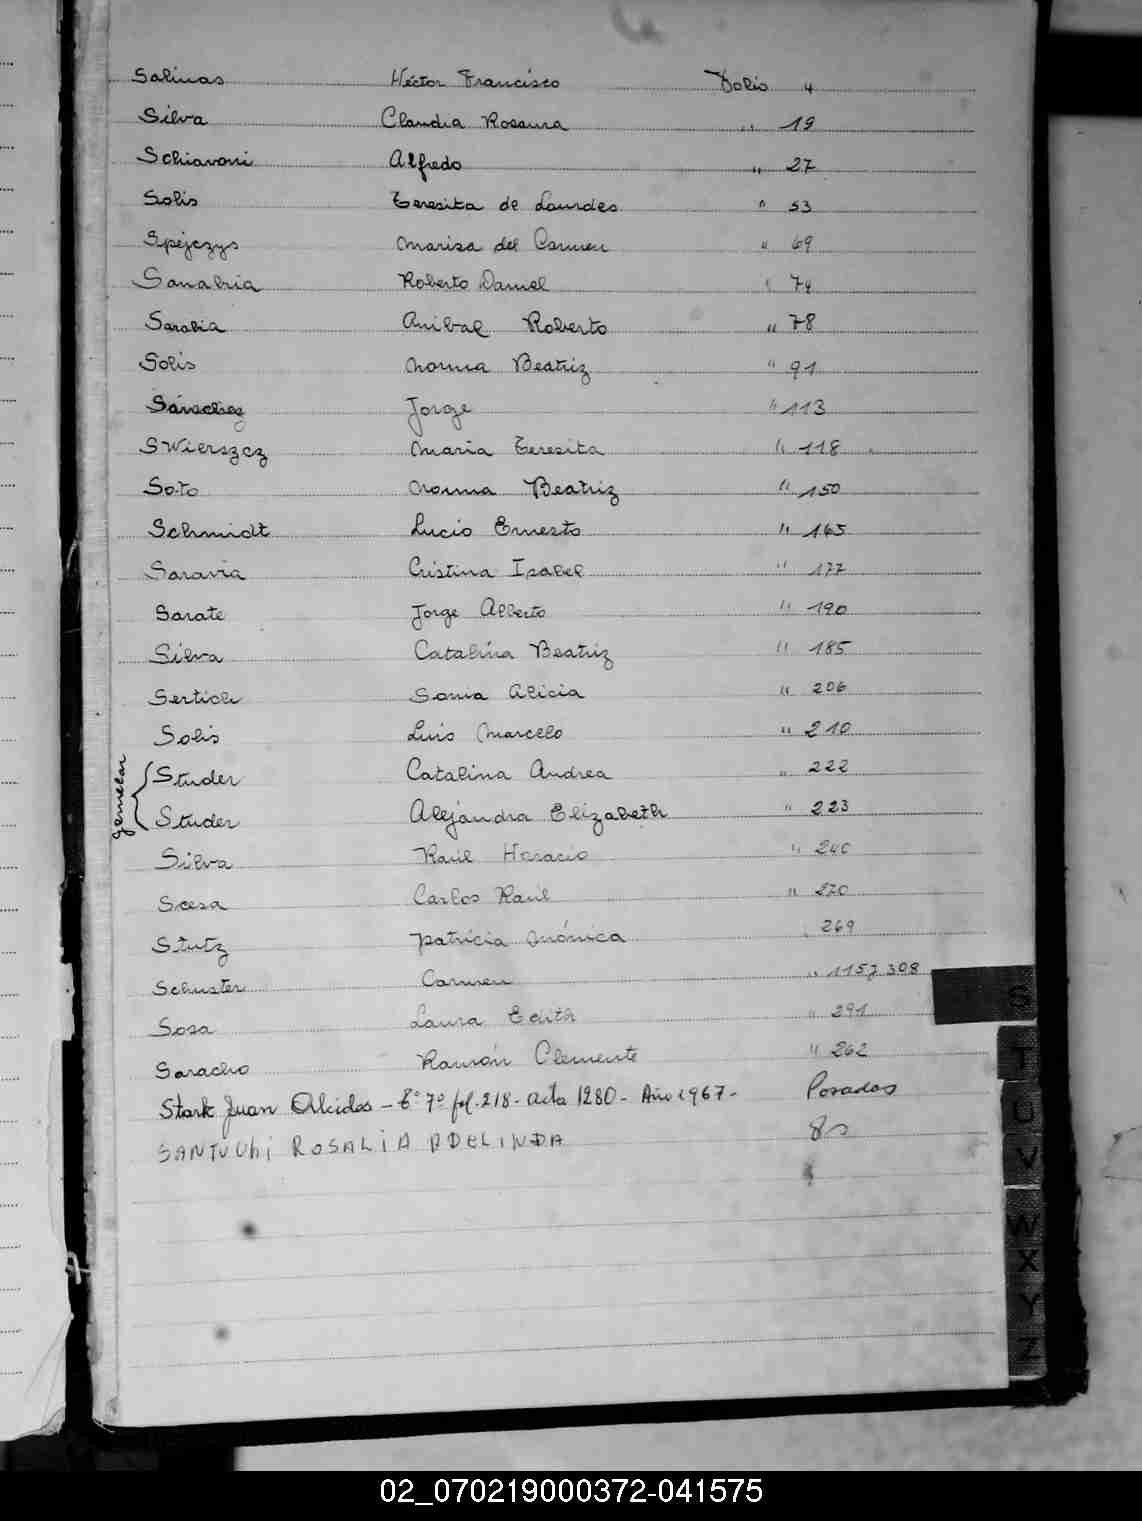 Salinas Héctor Francisco Folio 4
Silva Claudia Rosaura " 19
Schiavoni Alfredo " 27
Solis Teresita de Lourdes " 53
Spejczys Marisa del Carmen " 69
Sanabria Roberto Daniel " 74
Sarabia Anibal Roberto " 78
Solis Norma Beatriz " 91
Sánchez Jorge " 113
Swierszcz Maria Teresita " 118
Soto Norma Beatriz " 150
Schmidt Lucio Ernesto " 165
Saravia Cristina Isabel " 177
Sarate Jorge Alberto " 190
Silva Catalina Beatriz " 185
Sertich Sonia Alicia " 206
Solis Luis Marcelo " 210
Studer Catalina Andrea " 222
gemelar
Studer Alejandra Elizabeth " 223
Silva Raúl Horacio " 240
Scesa Carlos Raúl " 270
Stutz Patricia Mónica 269
Schuster Carmen " 308
Sosa Laura Edith " 291
Saracho Ramón Clemente " 262
Stark Juan Alcides - tº 7º fol. 218 - acta 1280 - Año 1967 - Posadas
SANTUCHI ROSALIA ADELINDA 80
S
T
U
V
W
X
Y
Z
02_070219000372-041575